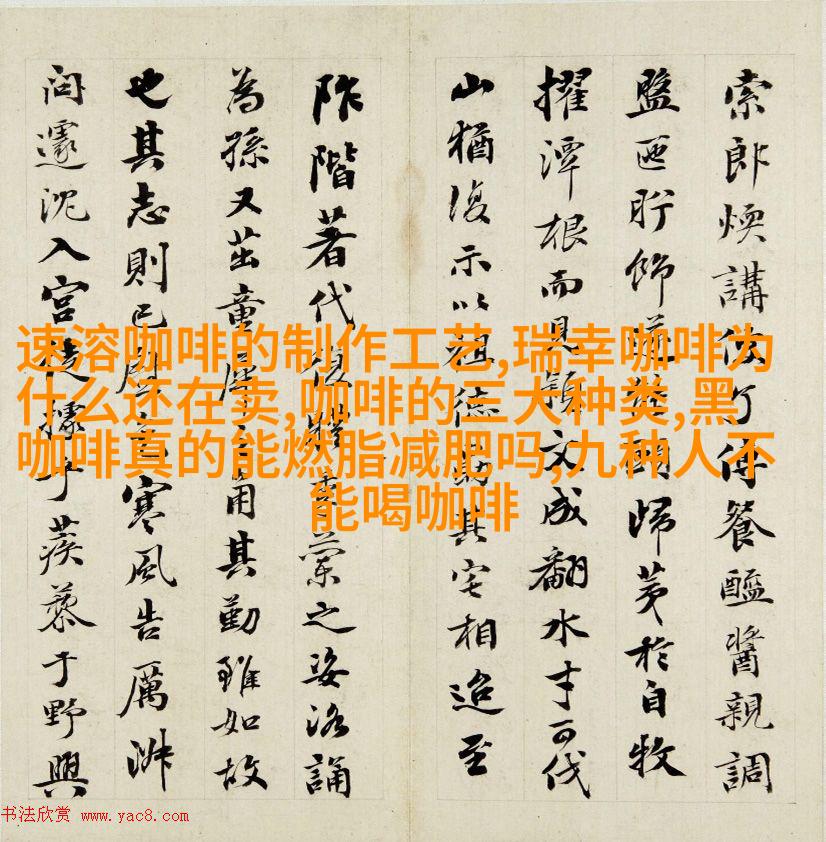 速溶咖啡的制作工艺,瑞幸咖啡为
什么还在卖,咖啡的三大种类,黑
咖啡真的能燃脂减肥吗,九种人不
能喝咖啡
索郎煥講餐醢醬親調
盥匜貯飾歸荑於自牧
擢潭根而見穎文成翻水才可伐
山猶復示以祖德其宅相迨至
阼階著代復蘭之姿洛誦
為孫又茁童角其勤雖如故
也其志則已寒風告厲
問遽沈入宮據于蒺藜于野興
书法欣赏 www.yac8.com